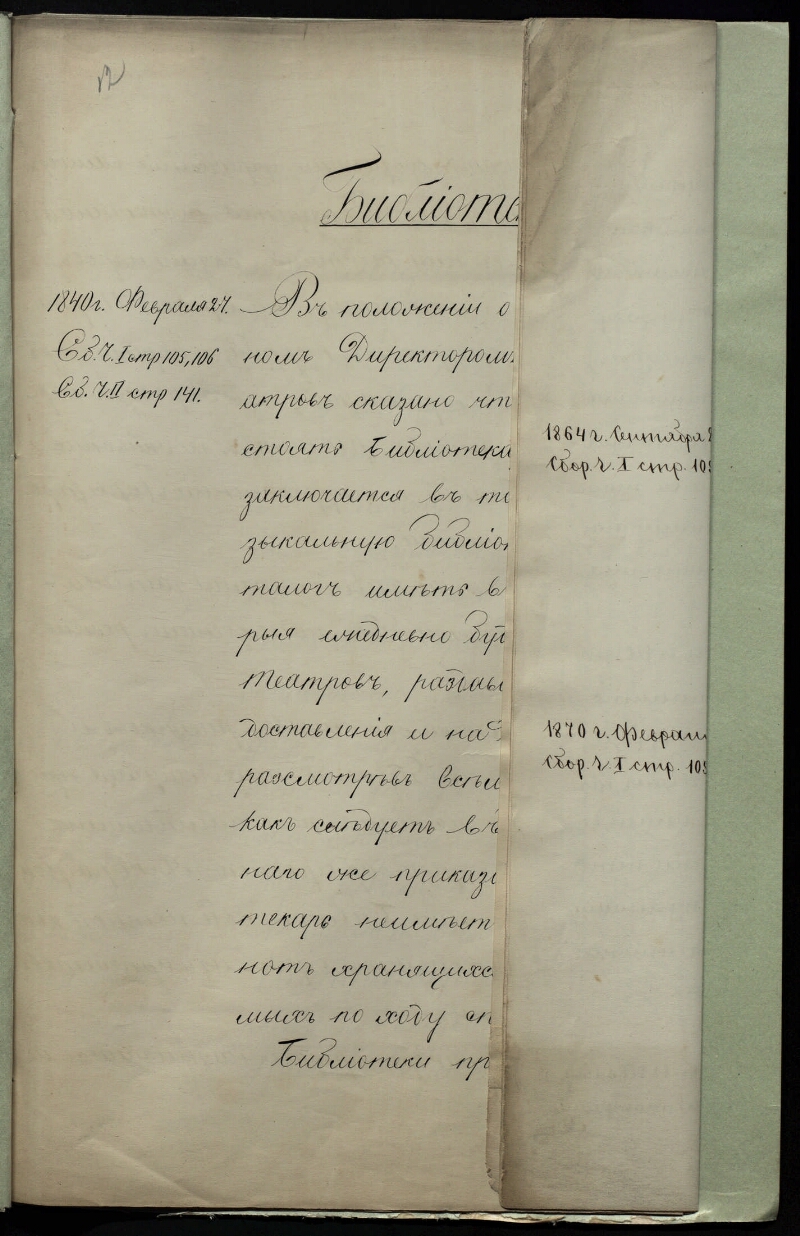 12
Библіоте
1840 г. Февраля 27.
Сб. Ч. I стр 105, 106
Сб. Ч. II стр 141.
Въ положеніи о
номъ Директоромъ
атровъ сказано чт
стоятъ Библіотека
заключается въ то
зыкальную библіо
талогъ имѣть в
рыя ежедневно буд
Театровъ,
доставленія и на
разсмотрѣвъ всѣм
какъ слѣдуетъ въ
наго же приказ
текарь неимѣет
нотъ хранящихс
мыхъ по ходу сп
Библіотеки пр
1864 г. Сентября
Сбор. Ч. I стр. 105
1870 г. Феврал
Сбор. Ч. I стр. 105